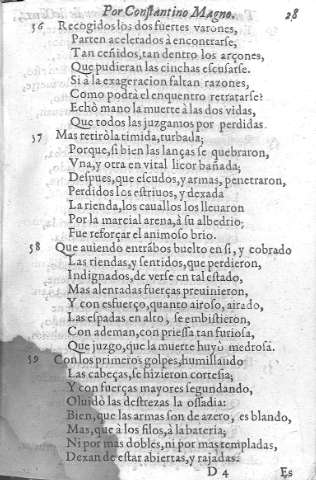 Por Constantino Magno. 28
56 Recogidos los dos fuertes varones,
Parten acelerados à encontrarse,
Tan ceñidos, tan dentro los arçones,
Que pudieran las cinchas escusarse.
Si à la exageracion faltan razones,
Como podrà el enquentro retratarse?
Echò mano la muerte à las dos vidas,
Que todos las juzgamos por perdidas.
57 Mas retiròla timida, turbada;
Porque, si bien las lanças se quebraron,
Vna, y otra en vital licor bañada;
Despues, que escudos, y armas, penetraron,
Perdidos los estriuos, y dexada
La rienda, los cauallos los lleuaron
Por la marcial arena, à su albedrio;
Fue reforçar el animoso brio.
58 Que auiendo entràbos buelto en si, y cobrado
Las riendas, y sentidos, que perdieron,
Indignados, de verse en tal estado,
Mas alentadas fuerças preuinieron,
Y con esfuerço, quanto airoso, airado,
Las espadas en alto, se embistieron,
Con ademan, con priessa tan furiosa,
Que juzgo, que la muerte huyò medrosa.
59 Con los primeros golpes, humillando
Las cabeças, se hizieron cortesia;
Y con fuerças mayores segundando,
Oluidò las destrezas la ossadia:
Bien, que las armas son de azero, es blando,
Mas, que à los filos, à la bateria;
Ni por mas dobles, ni por mas templadas,
Dexan de estar abiertas, y rajadas.
D 4 Es